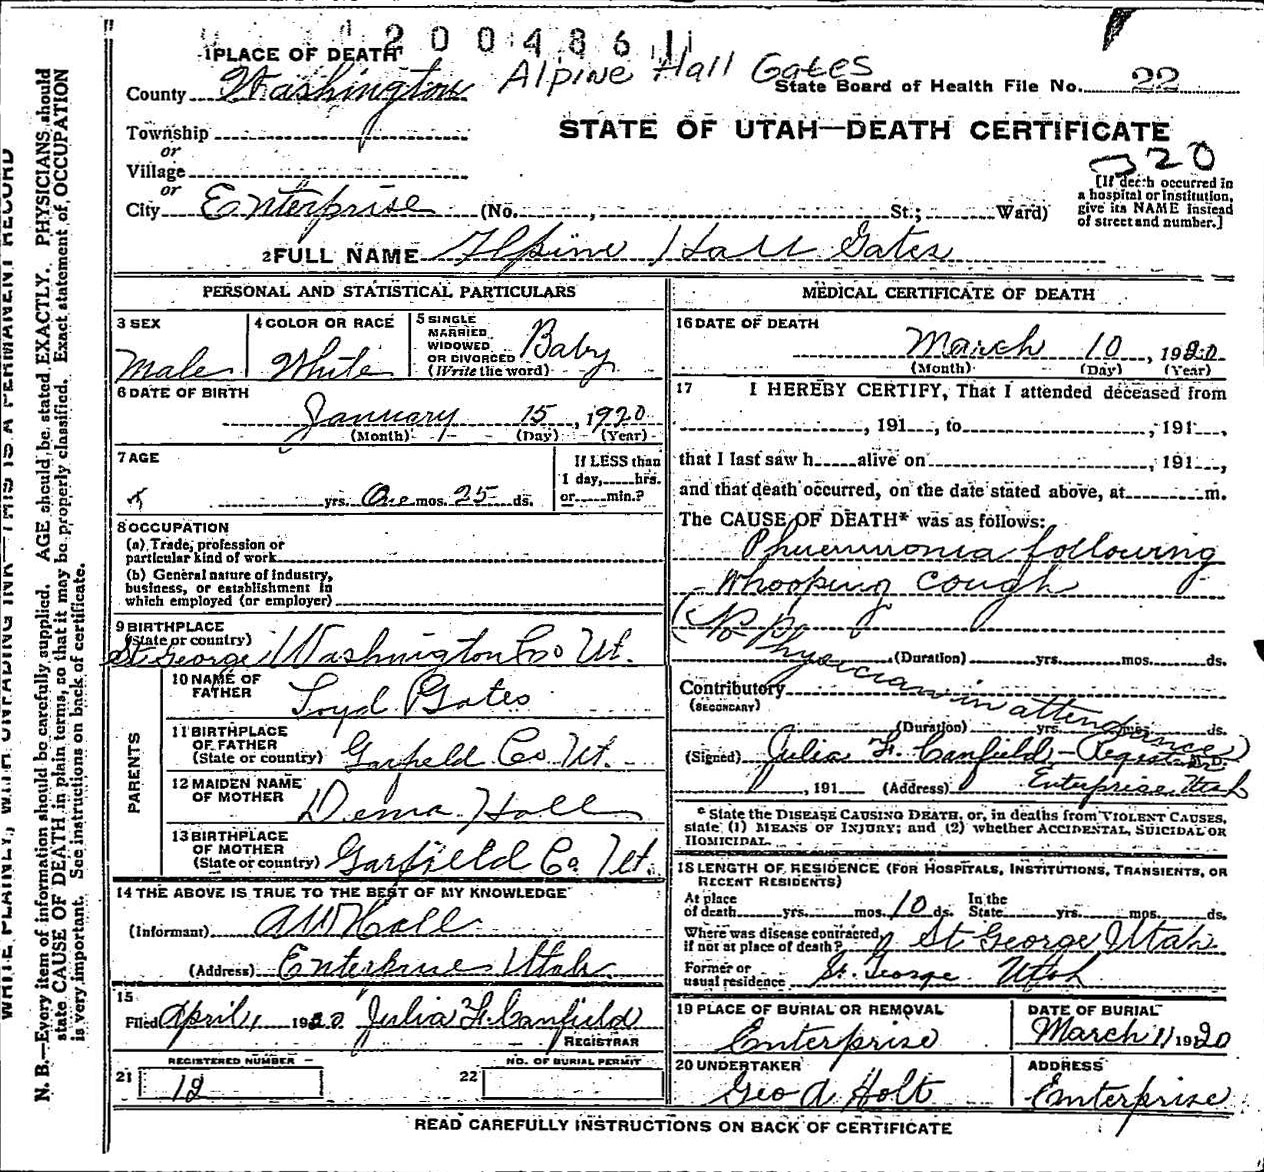 2 0 0 4 8 6 1
1 PLACE OF DEATH
Alpine Hall Gates
County Washington
State Board of Health File No. 22
Township
or
STATE OF UTAH—DEATH CERTIFICATE
20
Village
or
City Enterprise (No. , St.; Ward)
[If death occurred in
a hospital or institution,
give its NAME instead
of street and number.]
2 FULL NAME Alpine Hall Gates
PERSONAL AND STATISTICAL PARTICULARS
3 SEX
Male
4 COLOR OR RACE
White
5 SINGLE
MARRIED
WIDOWED
OR DIVORCED
(Write the word)
Baby
6 DATE OF BIRTH
January 15, 1920
(Month) (Day) (Year)
7 AGE
yrs. One mos. 25 ds.
If LESS than
1 day, hrs.
or min.?
8 OCCUPATION
(a) Trade, profession or
particular kind of work
(b) General nature of industry,
business, or establishment in
which employed (or employer)
9 BIRTHPLACE
(State or country)
St. George Washington Co Ut.
PARENTS
10 NAME OF
FATHER
Loyd Gates
11 BIRTHPLACE
OF FATHER
(State or country)
Garfield Co Ut.
12 MAIDEN NAME
OF MOTHER
Dema Hall
13 BIRTHPLACE
OF MOTHER
(State or country)
Garfield Co. Ut.
14 THE ABOVE IS TRUE TO THE BEST OF MY KNOWLEDGE
(Informant) A W Hall
(Address) Enterprise Utah
15
Filed April 1, 1920 Julia F. Canfield
REGISTRAR
REGISTERED NUMBER
21 12
NO. OF BURIAL PERMIT
22
MEDICAL CERTIFICATE OF DEATH
16 DATE OF DEATH
March 10, 1920
(Month) (Day) (Year)
17 I HEREBY CERTIFY, That I attended deceased from
, 191 , to , 191 ,
that I last saw h alive on , 191 ,
and that death occurred, on the date stated above, at m.
The CAUSE OF DEATH* was as follows:
Phuemmonia following
Whooping Cough
(No Physician in attendance)
(Duration) yrs. mos. ds.
Contributory
(SECONDARY)
(Duration) yrs. mos. ds.
(Signed) Julia F. Canfield - Registrar M. D.
, 191 (Address) Enterprise, Utah
* State the DISEASE CAUSING DEATH, or, in deaths from VIOLENT CAUSES,
state (1) MEANS OF INJURY; and (2) whether ACCIDENTAL, SUICIDAL OR
HOMICIDAL.
18 LENGTH OF RESIDENCE (FOR HOSPITALS, INSTITUTIONS, TRANSIENTS, OR
RECENT RESIDENTS)
At place
of death yrs. mos. 10 ds.
In the
State yrs. mos. ds.
Where was disease contracted,
if not at place of death? St George Utah
Former or
usual residence St. George Utah
19 PLACE OF BURIAL OR REMOVAL
Enterprise
DATE OF BURIAL
March 11 1920
20 UNDERTAKER
Geo A Holt
ADDRESS
Enterprise
READ CAREFULLY INSTRUCTIONS ON BACK OF CERTIFICATE
WRITE PLAINLY, WITH UNFADING INK—THIS IS A PERMANENT RECORD
N. B.—Every item of information should be carefully supplied. AGE should be stated EXACTLY. PHYSICIANS should
state CAUSE OF DEATH in plain terms, so that it may be properly classified. Exact statement of OCCUPATION
is very important. See instructions on back of certificate.